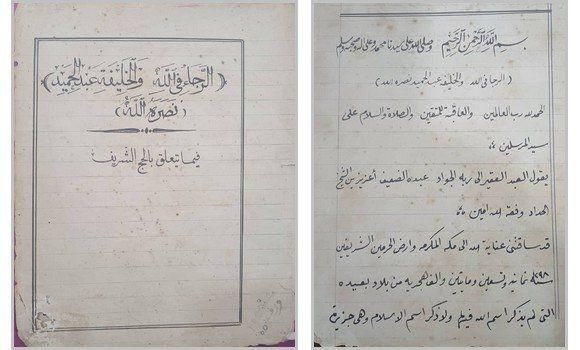 (الرجاء في الله والخليفة عبد الحميد)
(نصره الله)
فيما يتعلق بالحج الشريف
بسم الله الرحمن الرحيم وصلى الله على سيدنا محمد وعلى اله وصحبه وسلم
(الرجا في الله والخليفة عبد الحميد نصره الله)
الحمد لله رب العالمين والعاقبة للمتقين والصلاة والسلام على
سيد المرسلين
يقول العبد الفقير الى ربه الجواد عبده الضعيف أعزيز بن الشيخ
الحداد وفقه الله امين
قد ساقتنى عناية الله الى مكة المكرمه وارض الحرمين الشريفين
سنة ١٢٩٨ ثمانية وتسعين ومايتين والف هجريه من بلاد بعيده
التى لم يذكر اسم الله فيها ولا ذكر اسم الاسلام وهى جزيرة